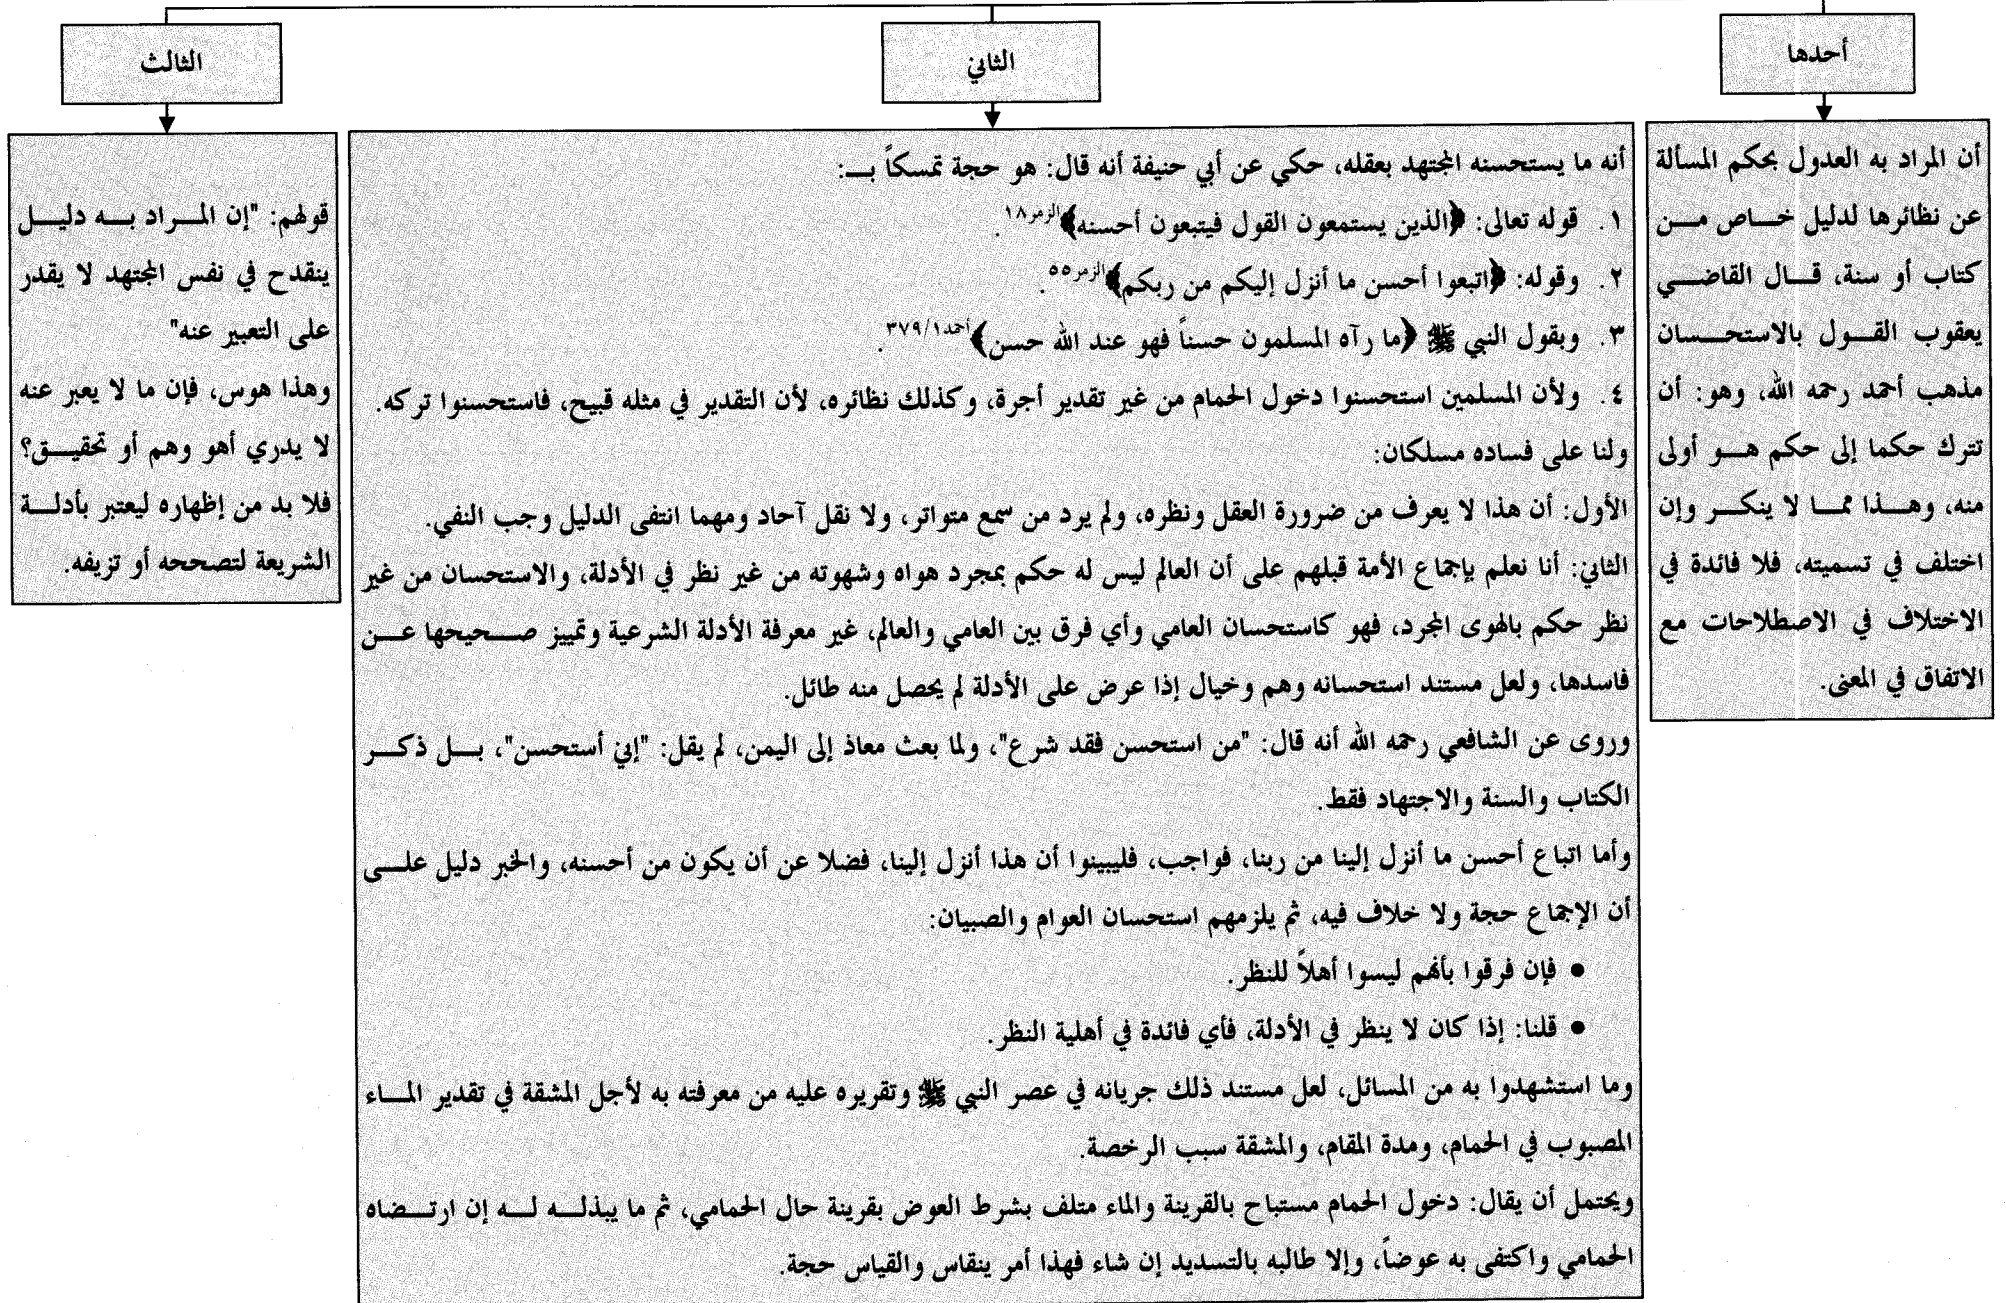 أحدها
أن المراد به العدول بحكم المسألة
عن نظائرها لدليل خاص من
كتاب أو سنة، قال القاضي
يعقوب القول بالاستحسان
مذهب أحمد رحمه الله، وهو: أن
تترك حكما إلى حكم هو أولى
منه، وهذا مما لا ينكر وإن
اختلف في تسميته، فلا فائدة في
الاختلاف في الاصطلاحات مع
الاتفاق في المعنى.
الثاني
أنه ما يستحسنه المجتهد بعقله، حكي عن أبي حنيفة أنه قال: هو حجة تمسكاً بـ:
١. قوله تعالى: ﴿الذين يستمعون القول فيتبعون أحسنه﴾ الزمر١٨.
٢. وقوله: ﴿اتبعوا أحسن ما أنزل إليكم من ربكم﴾ الزمر٥٥.
٣. وبقول النبي ﷺ ﴿ما رآه المسلمون حسناً فهو عند الله حسن﴾ أحمد ٣٧٩/١.
٤. ولأن المسلمين استحسنوا دخول الحمام من غير تقدير أجرة، وكذلك نظائره، لأن التقدير في مثله قبيح، فاستحسنوا تركه.
ولنا على فساده مسلكان:
الأول: أن هذا لا يعرف من ضرورة العقل ونظره، ولم يرد من سمع متواتر، ولا نقل آحاد ومهما انتفى الدليل وجب النفي.
الثاني: أنا نعلم بإجماع الأمة قبلهم على أن العالم ليس له حكم بمجرد هواه وشهوته من غير نظر في الأدلة، والاستحسان من غير
نظر حكم بالهوى المجرد، فهو كاستحسان العامي وأي فرق بين العامي والعالم، غير معرفة الأدلة الشرعية وتمييز صحيحها عن
فاسدها، ولعل مستند استحسانه وهم وخيال إذا عرض على الأدلة لم يحصل منه طائل.
وروى عن الشافعي رحمه الله أنه قال: "من استحسن فقد شرع"، ولما بعث معاذ إلى اليمن، لم يقل: "إني أستحسن"، بل ذكر
الكتاب والسنة والاجتهاد فقط.
وأما اتباع أحسن ما أنزل إلينا من ربنا، فواجب، فليبينوا أن هذا أنزل إلينا، فضلا عن أن يكون من أحسنه، والخبر دليل على
أن الإجماع حجة ولا خلاف فيه، ثم يلزمهم استحسان العوام والصبيان:
• فإن فرقوا بأنهم ليسوا أهلاً للنظر.
• قلنا: إذا كان لا ينظر في الأدلة، فأي فائدة في أهلية النظر.
وما استشهدوا به من المسائل، لعل مستند ذلك جريانه في عصر النبي ﷺ وتقريره عليه من معرفته به لأجل المشقة في تقدير الماء
المصبوب في الحمام، ومدة المقام، والمشقة سبب الرخصة.
ويحتمل أن يقال: دخول الحمام مستباح بالقرينة والماء متلف بشرط العوض بقرينة حال الحمامي، ثم ما يبذله له إن ارتضاه
الحمامي واكتفى به عوضاً، وإلا طالبه بالتسديد إن شاء فهذا أمر ينقاس والقياس حجة.
الثالث
قولهم: "إن المراد به دليل
ينقدح في نفس المجتهد لا يقدر
على التعبير عنه"
وهذا هوس، فإن ما لا يعبر عنه
لا يدري أهو وهم أو تحقيق؟
فلا بد من إظهاره ليعتبر بأدلة
الشريعة لتصححه أو تزيفه.